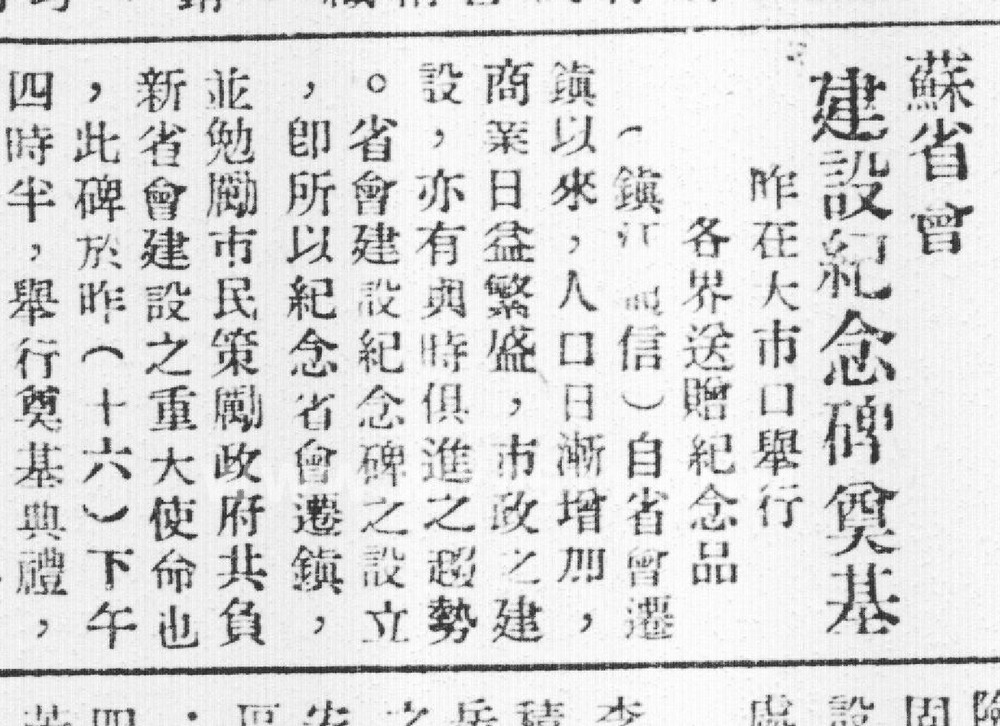 蘇省會
建設紀念碑奠基
昨在大市口舉行
各界送贈紀念品
（鎮江 信）自省會遷
鎮以來，人口日漸增加，
商業日益繁盛，市政之建
設，亦有與時俱進之趨勢
。省會建設紀念碑之設立
，卽所以紀念省會遷鎮，
並勉勵市民策勵政府共負
新省會建設之重大使命也
，此碑於昨（十六）下午
四時半，舉行奠基典禮，